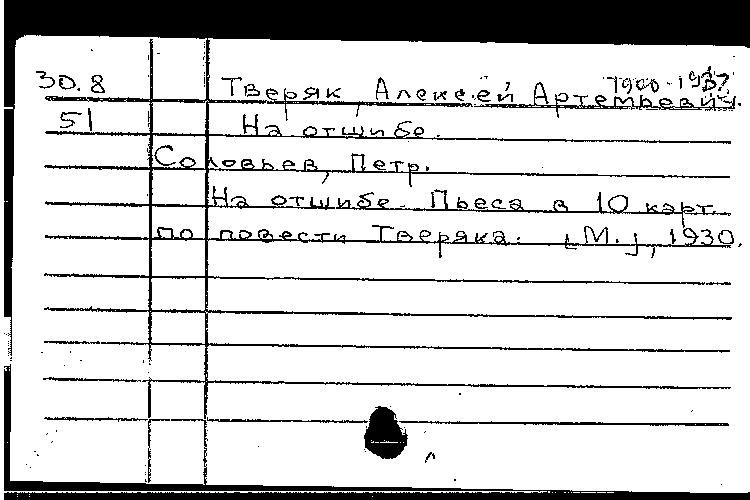 30.8 Тверяк, Алексей Артемьевич. 1900-1937
51 На отшибе.
Соловьев, Петр.
На отшибе. Пьеса в 10 карт.
по повести Тверяка. [М.], 1930.